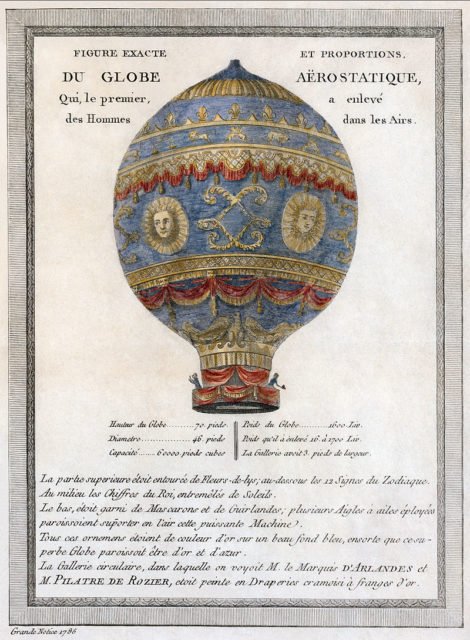 FIGURE EXACTE ET PROPORTIONS,
DU GLOBE AËROSTATIQUE,
Qui, le premier, a enlevé
des Hommes dans les Airs.
Hauteur du Globe..........70 pieds. Poids du Globe..........1600 Liv.
Diametre..................46. pieds Poids qu'il a enlevé 16 à 1700 Liv.
Capacité......60000 pieds cubes La Gallerie avoit 3. pieds de largeur.
La partie superieure étoit entourée de Fleurs-de-lys; au-dessous les 12 Signes du Zodiaque.
Au milieu les Chiffres du Roi, entremêlés de Soleils.
Le bas, étoit garni de Mascarons et de Guirlandes; plusieurs Aigles à ailes éployées
paroissoient suporter en l'air cette puissante Machine.
Tous ces ornemens étoient de couleur d'or sur un beau fond bleu, ensorte que ce su-
perbe Globe paroissoit être d'or et d'azur.
La Gallerie circulaire, dans laquelle on voyoit M. le Marquis D'ARLANDES et
M. PILATRE DE ROZIER, étoit peinte en Draperies cramoisi à franges d'or.
Grande Notice 1786